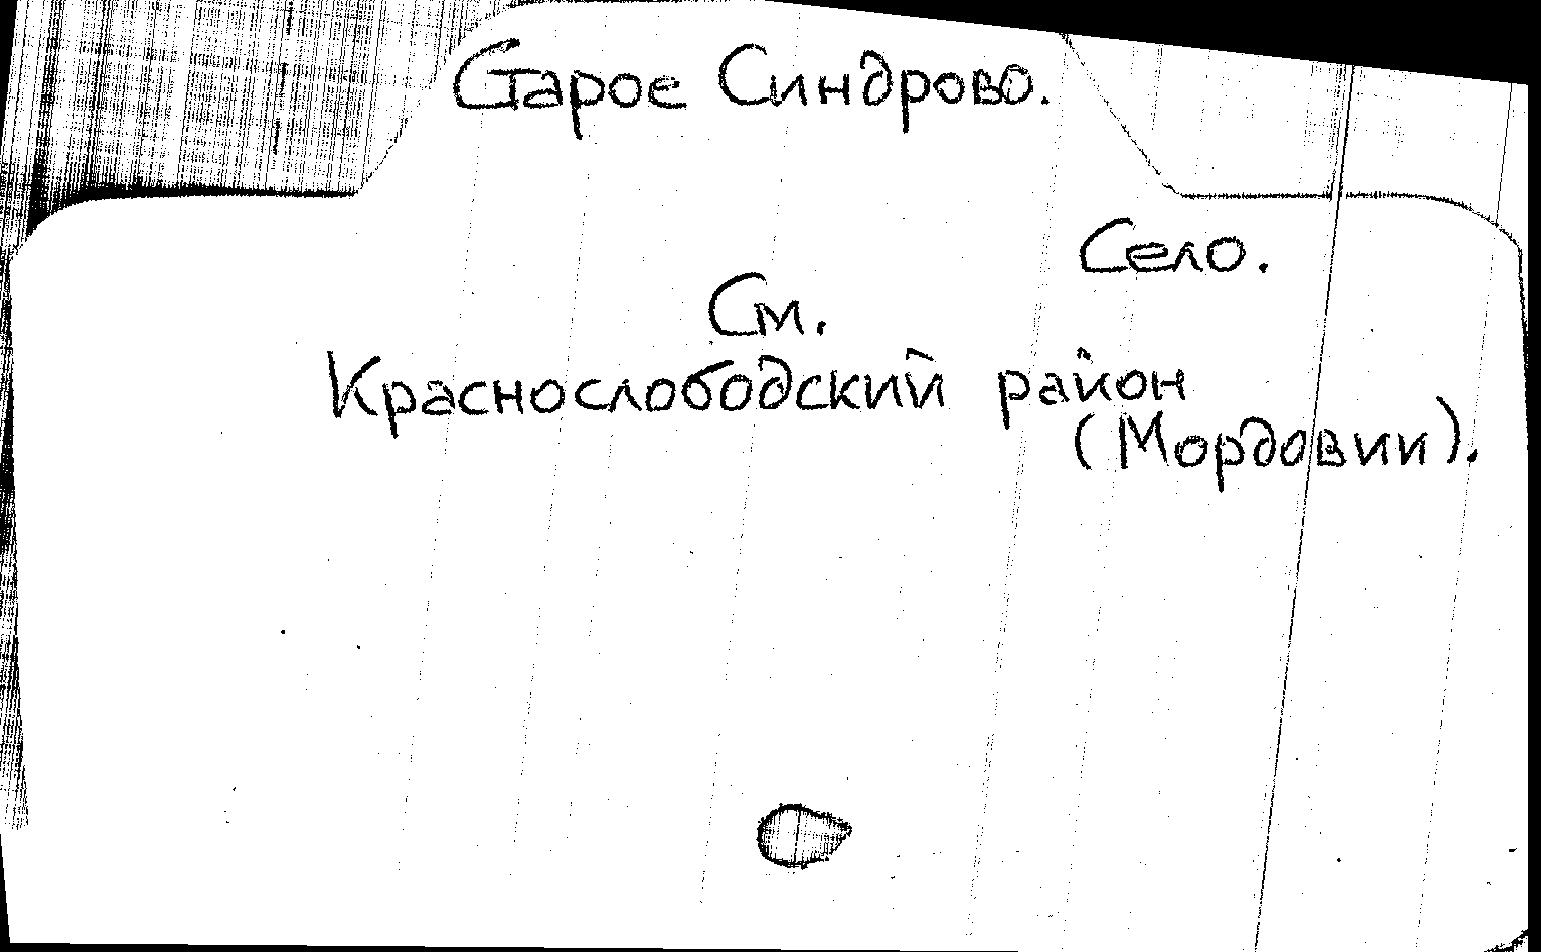 Старое Синдрово.
Село.
См.
Краснослободский район
(Мордовии).